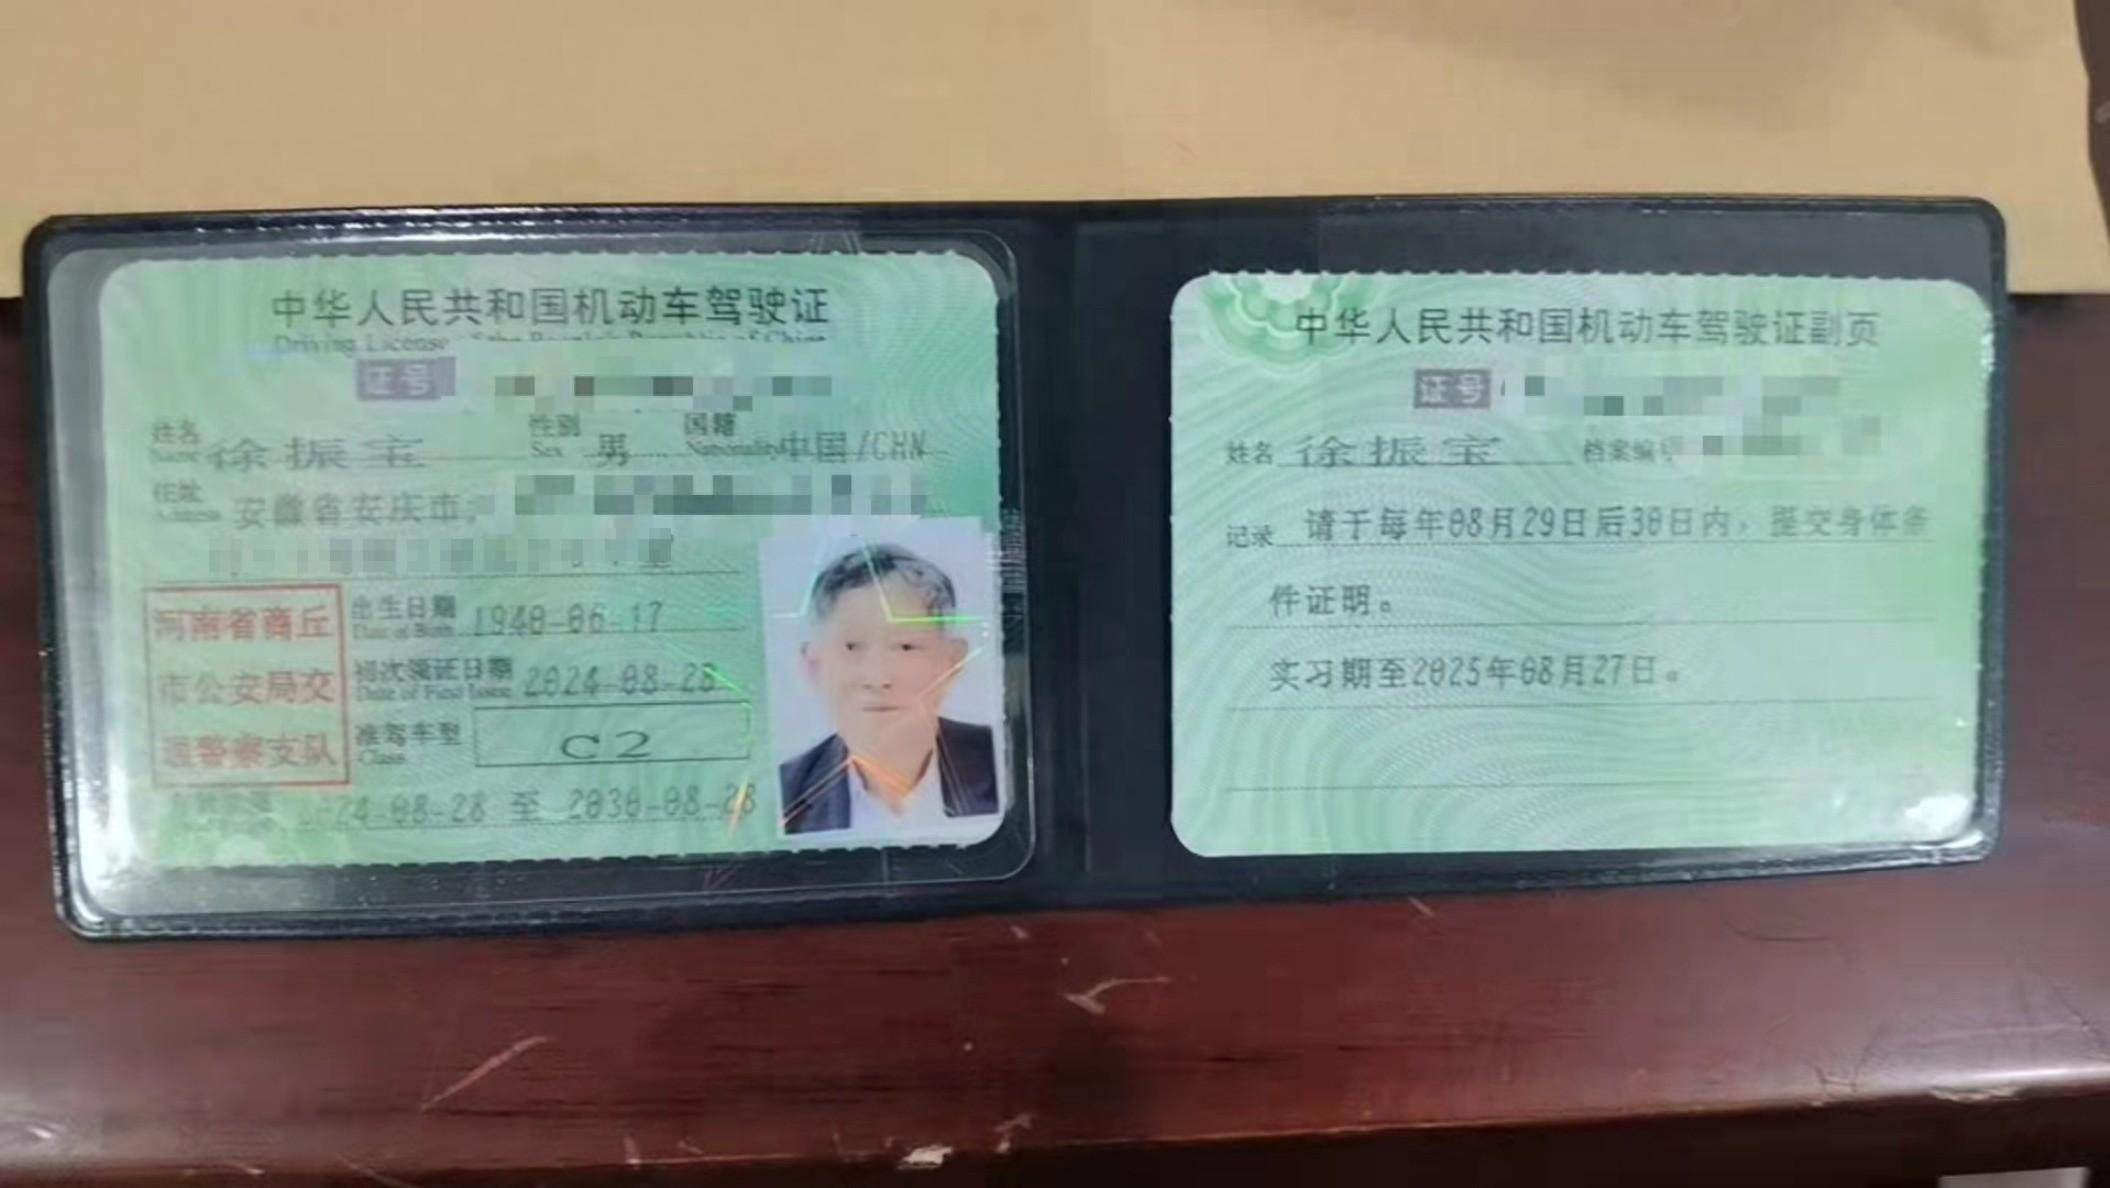 中华人民共和国机动车驾驶证
Driving License
证号
姓名 徐振宝 性别 男 国籍 中国/CHN
Name Sex Nationality
住址 安徽省安庆市
河南省商丘
市公安局交
通警察支队
出生日期 1940-06-17
Date of Birth
初次领证日期 2024-08-28
Date of First Issue
准驾车型 C2
Class
24-08-28 至 2030-08-28
中华人民共和国机动车驾驶证副页
证号
姓名 徐振宝 档案编号
记录 请于每年08月29日后30日内，提交身体条
件证明。
实习期至2025年08月27日。